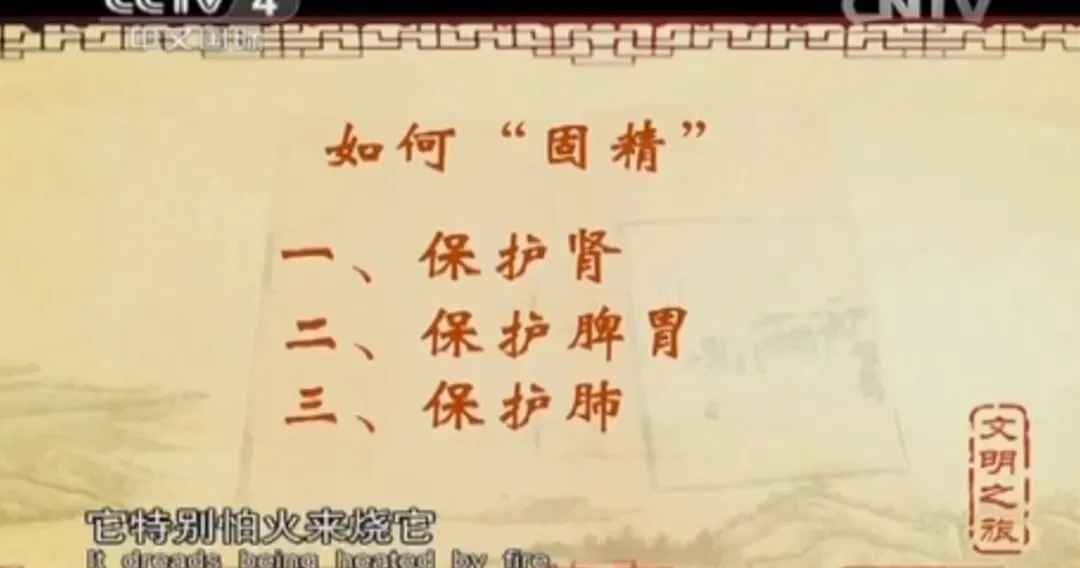 CCTV 4
CNTV
中文国际
如何“固精”
一、保护肾
二、保护脾胃
三、保护肺
文明之旅
它特别怕火来烧它
It dreads being heated by fire.